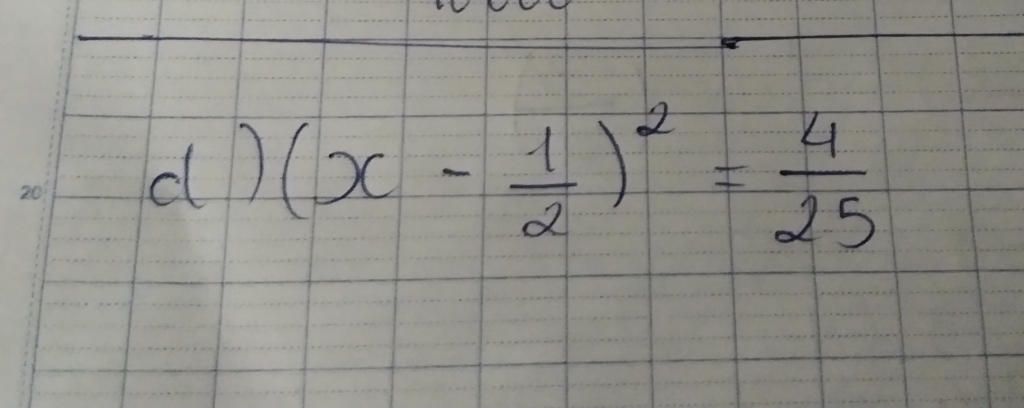 20
d) (x - 1/2)² = 4/25